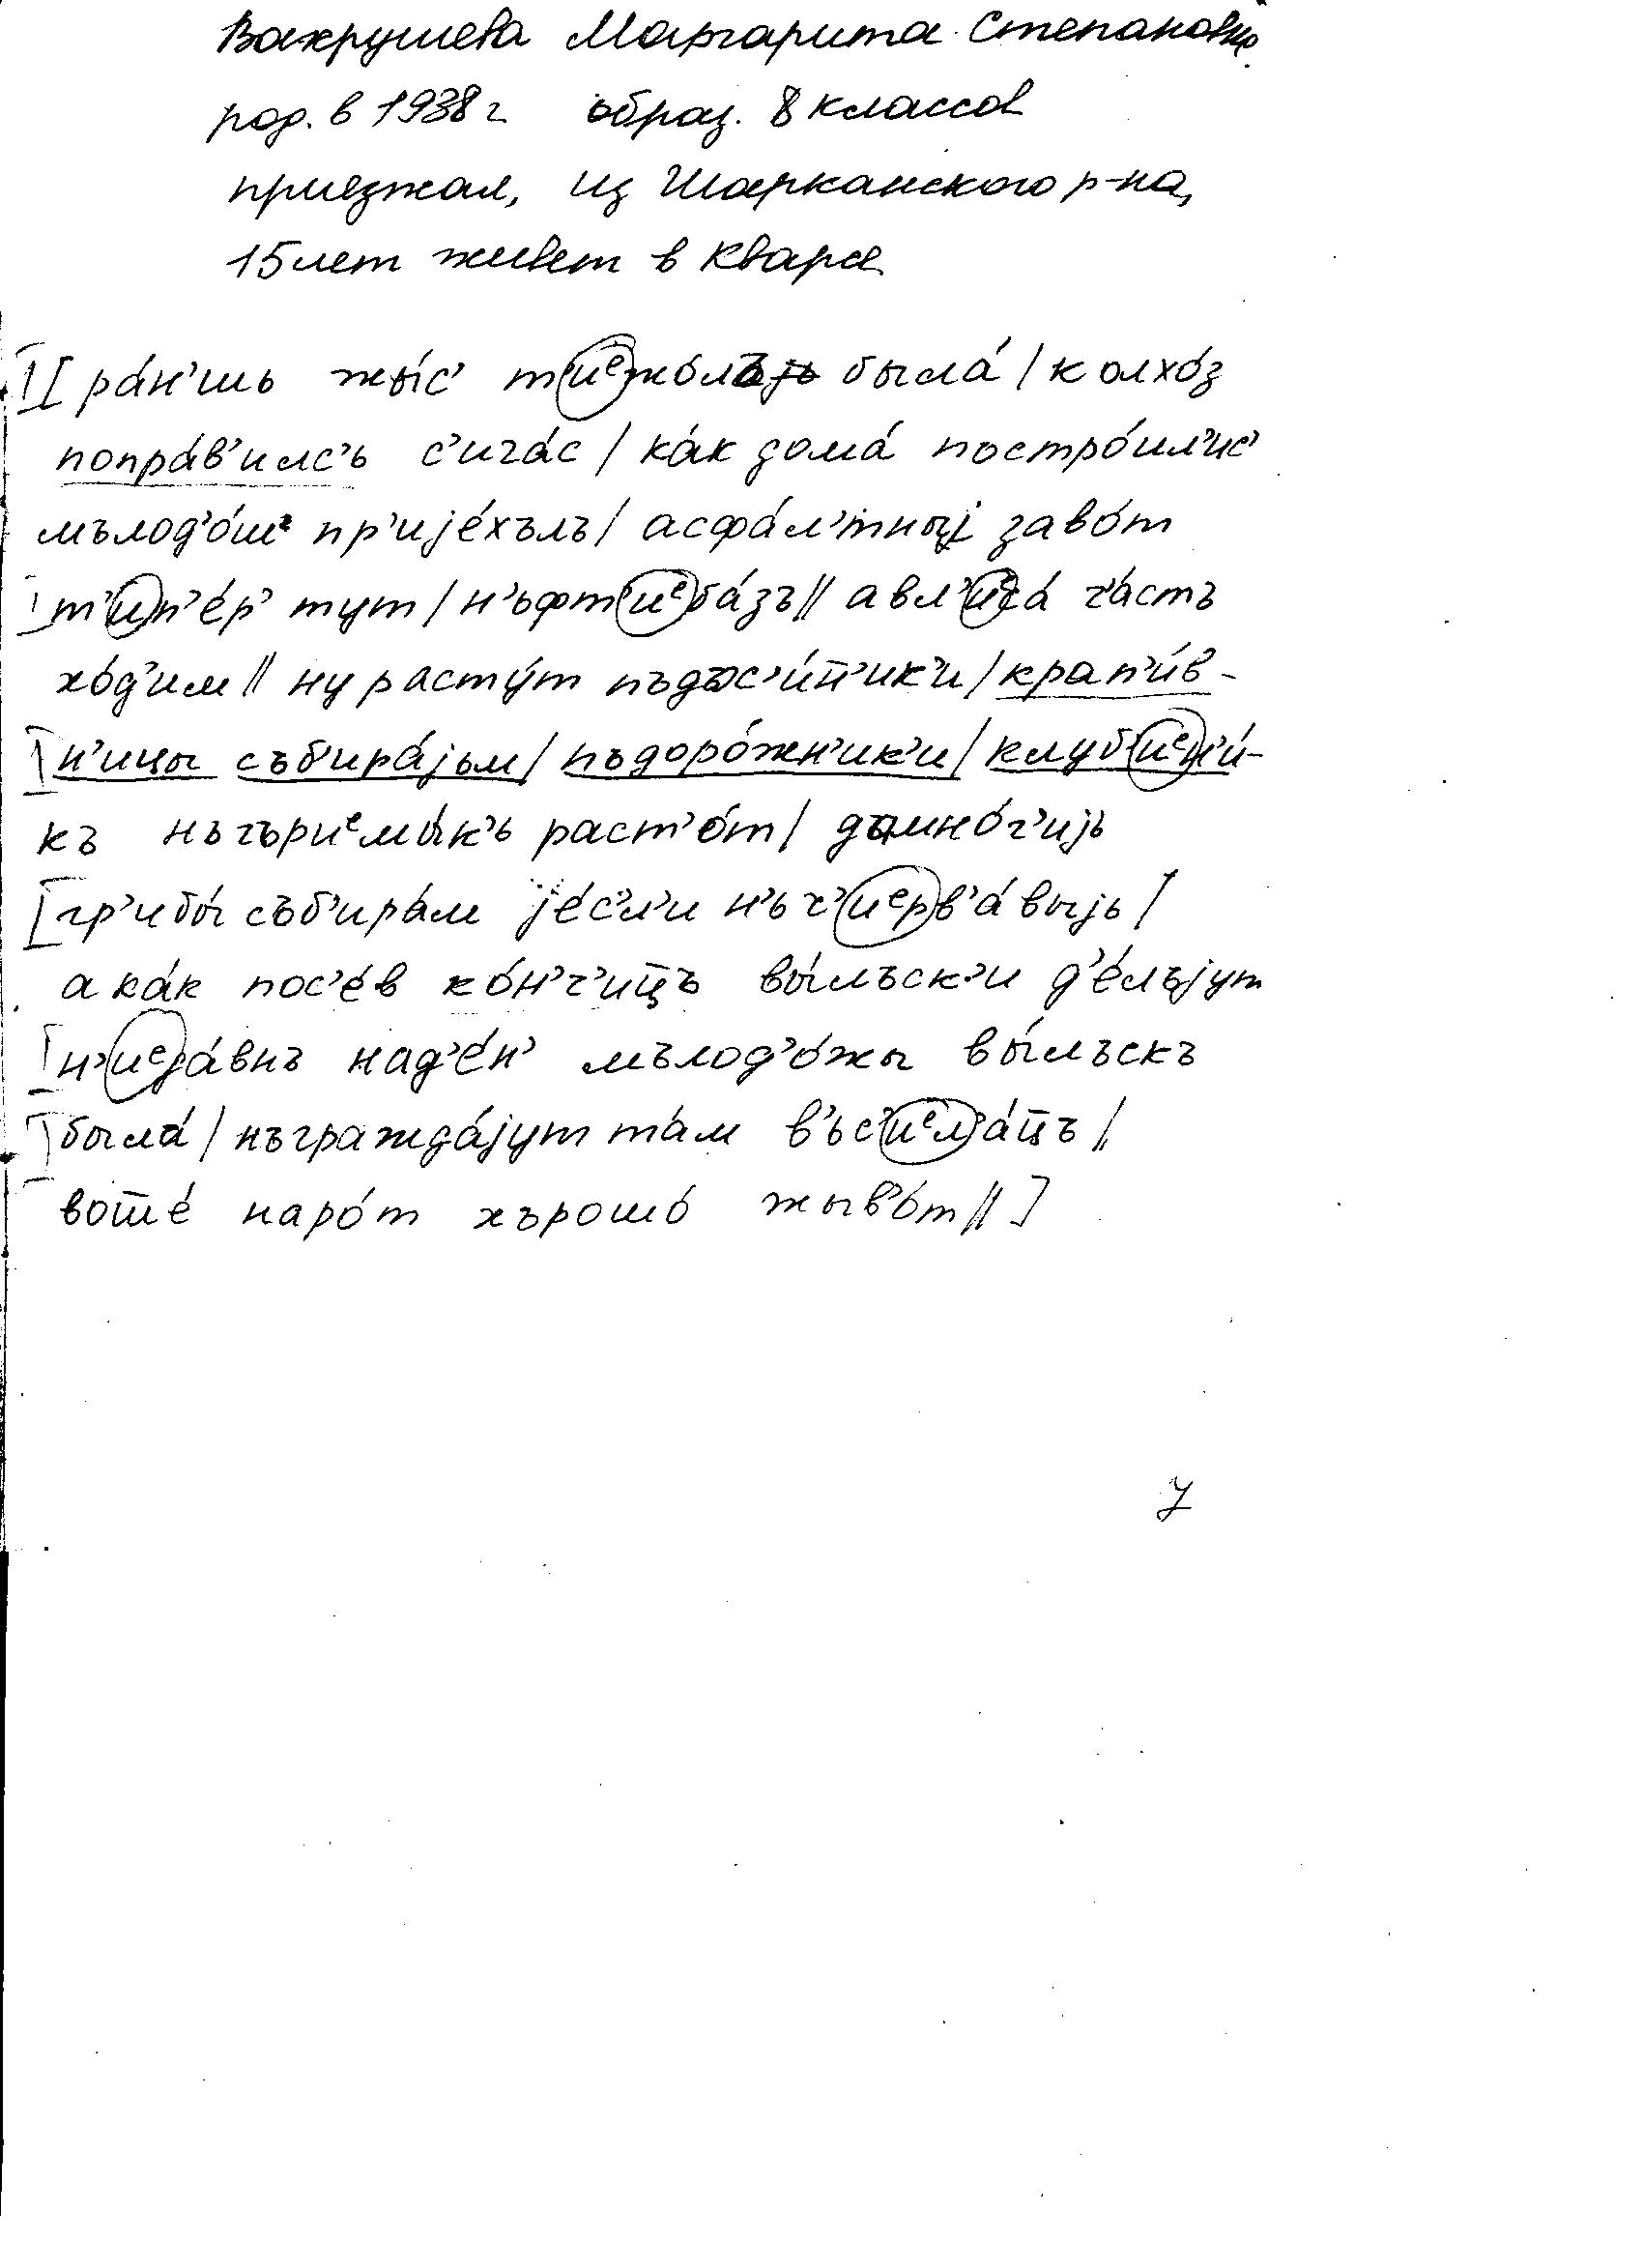 Вахрушева Маргарита Степановна
род. в 1938 г образ. 8 классов
приезжая, из Шарканского р-на,
15 лет живет в Кварсе
[ра́н’шь жы́с’ тиᵉжо́лъjь была́ / колхо́з
попра́в’илс’ъ с’ича́с / ка́к дома́ пъстро́ил’ис’
мълод’о́ш пр’иjе́хълъ / асфа́л’тныj заво́т
т’ип’е́р’ тут / н’ъфтиᵉба́зъ // а вл’иᵉса́ ча́стъ
хо́д’им // ну расту́т пъдъс’и́н̄’ик’и / крап’и́в-
н’ицы съб’ира́jьм / пъдоро́жн’ик’и / клуб’иᵉн’и́-
къ нъгъриᵉмы́к’ъ раст’о́т / да мно́г’иjь
[гр’ибы́ съб’ира́м jе́с’л’и н’ь ч’иᵉрв’а́выjь /
а ка́к пос’е́в ко́н’ч’иц̄ъ вы́лъск’и д’е́лъjут
н’иᵉда́внъ над’е́н’ мълод’о́жы вы́лъскъ
была́ / нъгражда́jут та́м в’ьс’иᵉл’а́ц̄ъ //
вош̄е́ наро́т хърошо́ жыв’о́т // ]
7